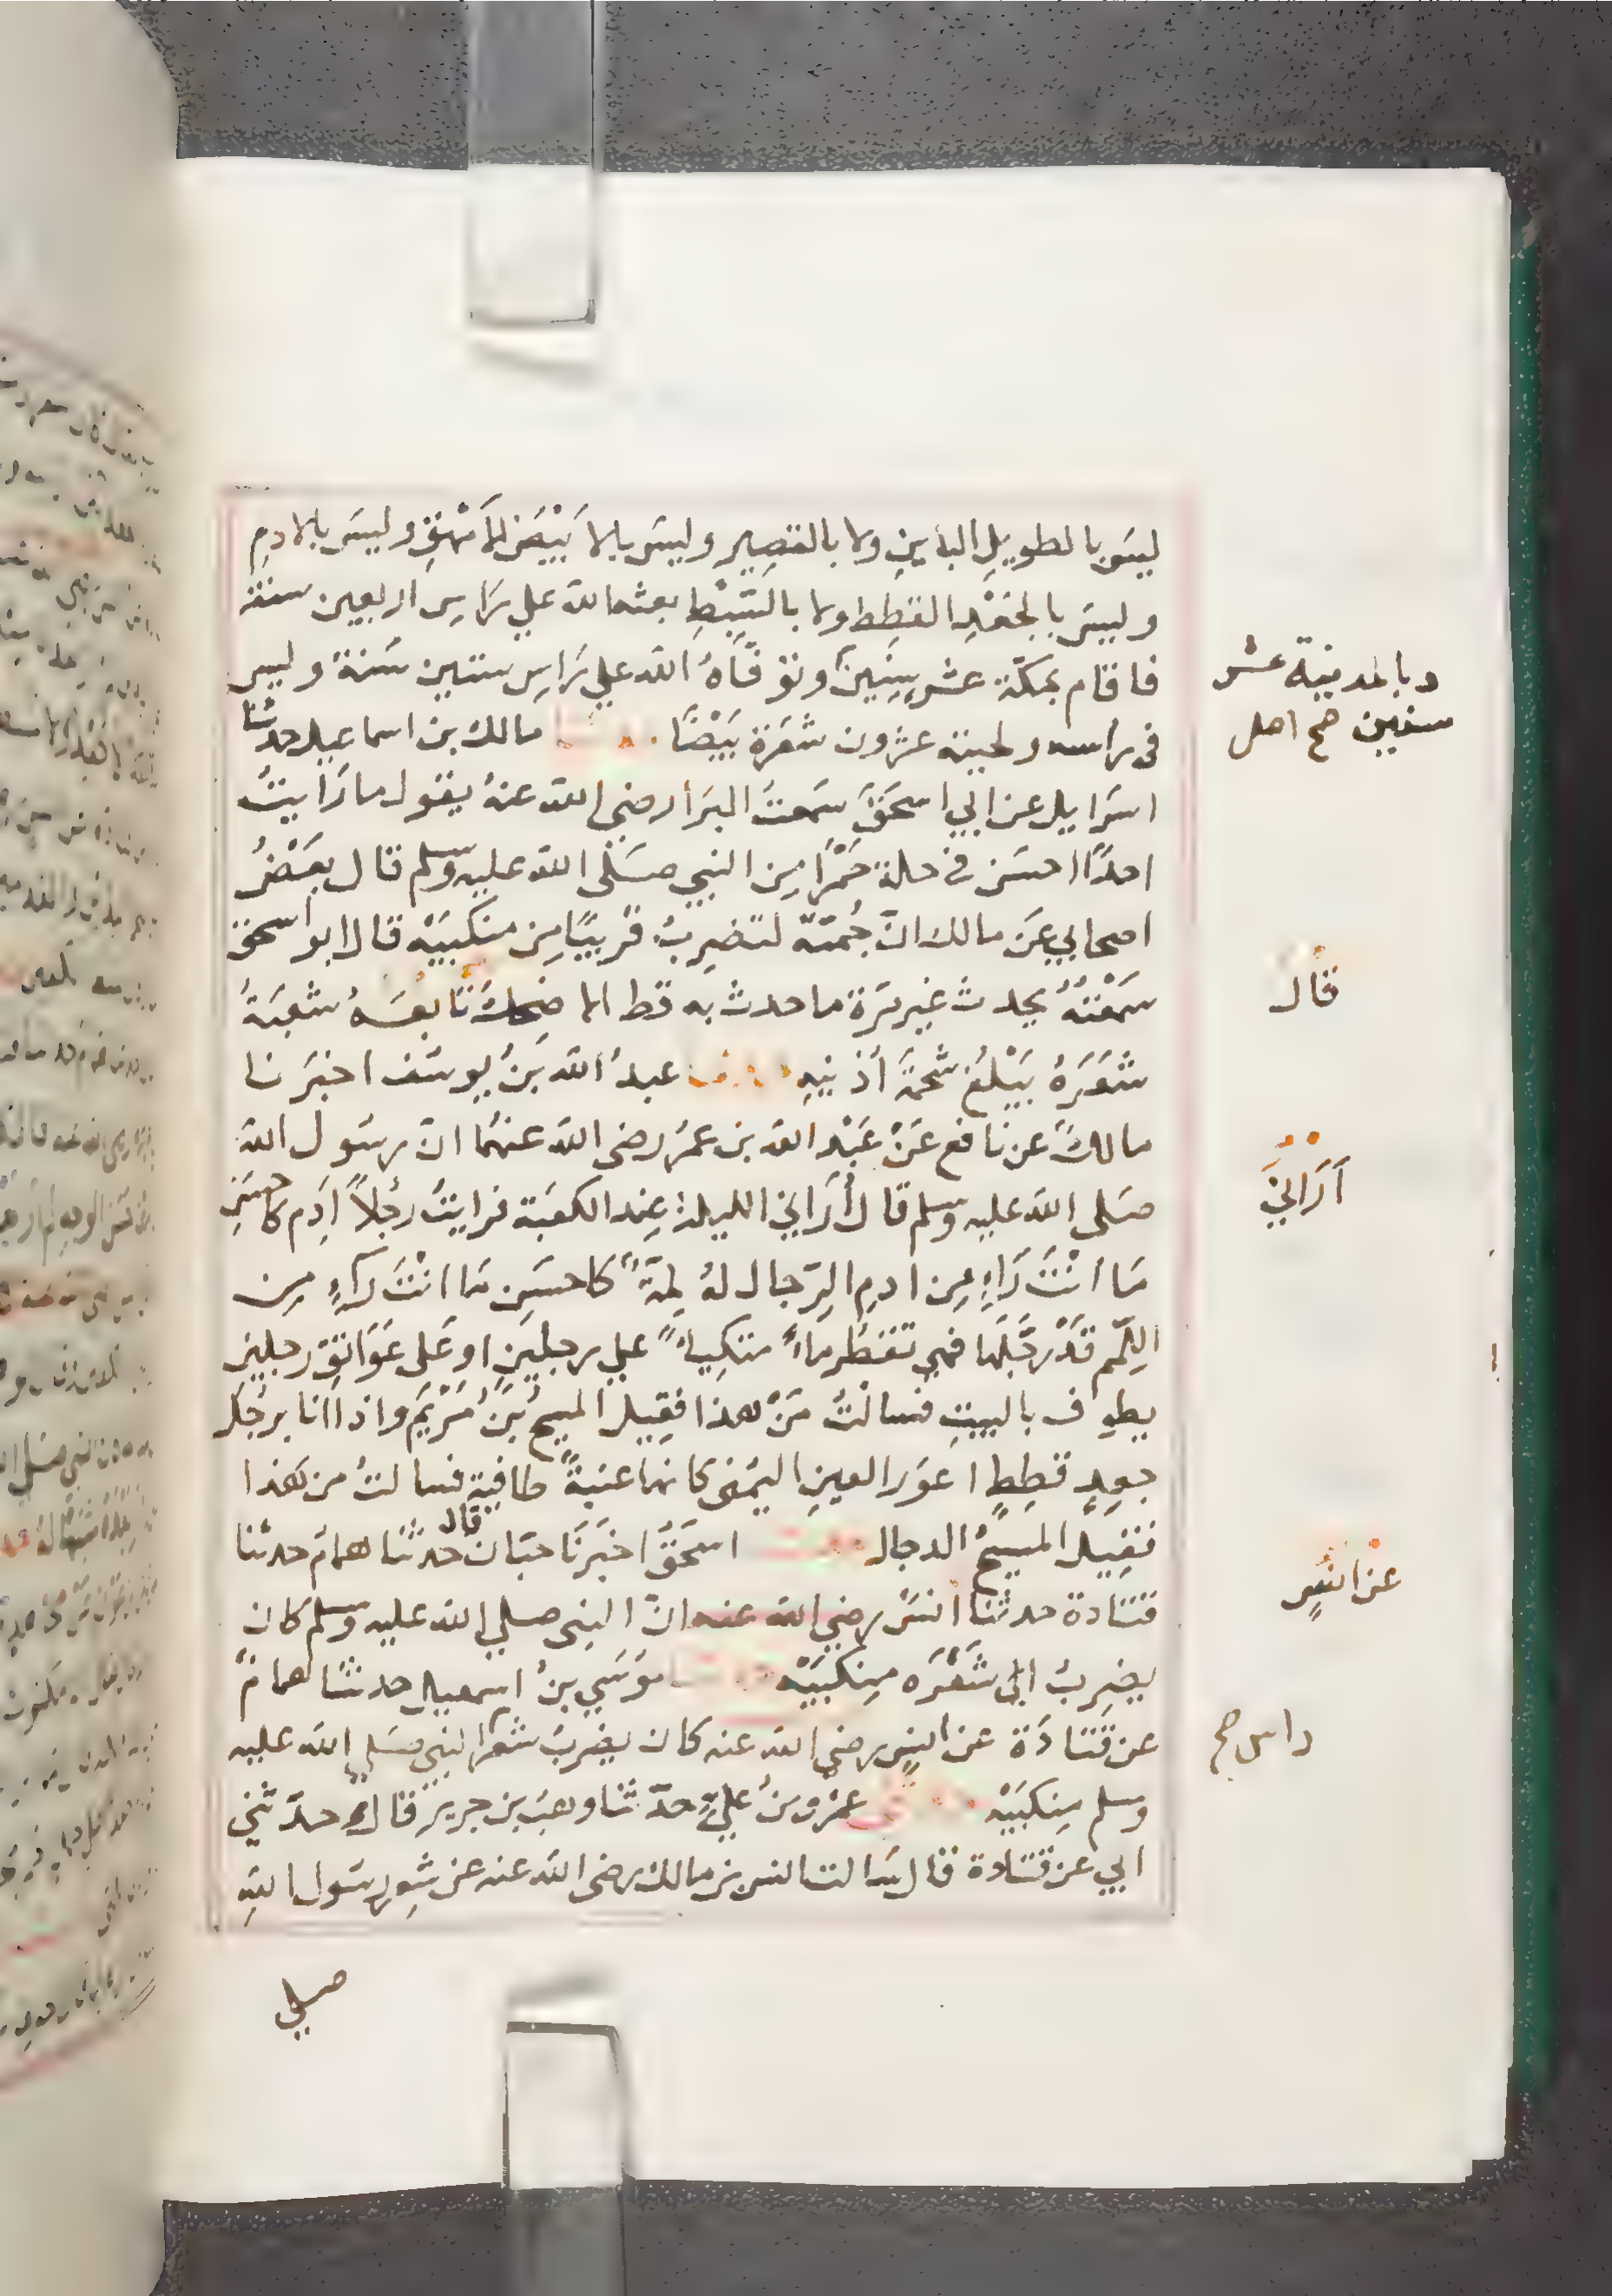 ليس بالطويل البائن ولا بالقصير وليس بالابيض الامهق وليس بالادم
وليس بالجعد القطط ولا بالسبط بعثه الله علي راس اربعين سنة
فاقام بمكة عشر سنين وتوفاه الله علي راس ستين سنة وليس
في راسه ولحيته عشرون شعرة بيضا مالك بن اسماعيل حدثنا
اسرايل عن ابي اسحق سمعت البرا رضي الله عنه يقول ما رايت
احدا احسن في حلة حمرا من النبي صلى الله عليه وسلم قال بعض
اصحابي عن مالك ان جمته لتضرب قريبا من منكبيه قال ابو اسحق
سمعته يحدث غير مرة ما حدث به قط الا ضحك تابعه شعبة
شعره يبلغ شحمة اذنيه عبد الله بن يوسف اخبرنا
مالك عن نافع عن عبد الله بن عمر رضي الله عنهما ان رسول الله
صلى الله عليه وسلم قال أراني الليلة عند الكعبة فرايت رجلا ادم كاحسن
ما انت راء من ادم الرجال له لمة كاحسن ما انت راء من
اللمم قد رجلها فهي تقطر ماء متكيا علي رجلين او على عواتق رجلين
يطوف بالبيت فسالت من هذا فقيل المسيح بن مريم واذا انا برجل
جعد قطط اعور العين اليمنى كانها عنبة طافية فسالت من هذا
فقيل المسيح الدجال اسحق اخبرنا حبان قال حدثنا همام حدثنا
قتادة حدثنا انس رضي الله عنه ان النبي صلي الله عليه وسلم كان
يضرب الى شعره منكبيه موسي بن اسمعيل حدثنا همام
عن قتادة عن انس رضي الله عنه كان يضرب شعر النبي صلي الله عليه
وسلم منكبيه عمرو بن علي حدثنا وهب بن جرير قال حدثني
ابي عن قتادة قال سالت انس بن مالك رضي الله عنه عن شعر رسول الله
صلي
وبالمدينة عشر
سنين صح اصل
قال
أراني
عن انس
راس صح